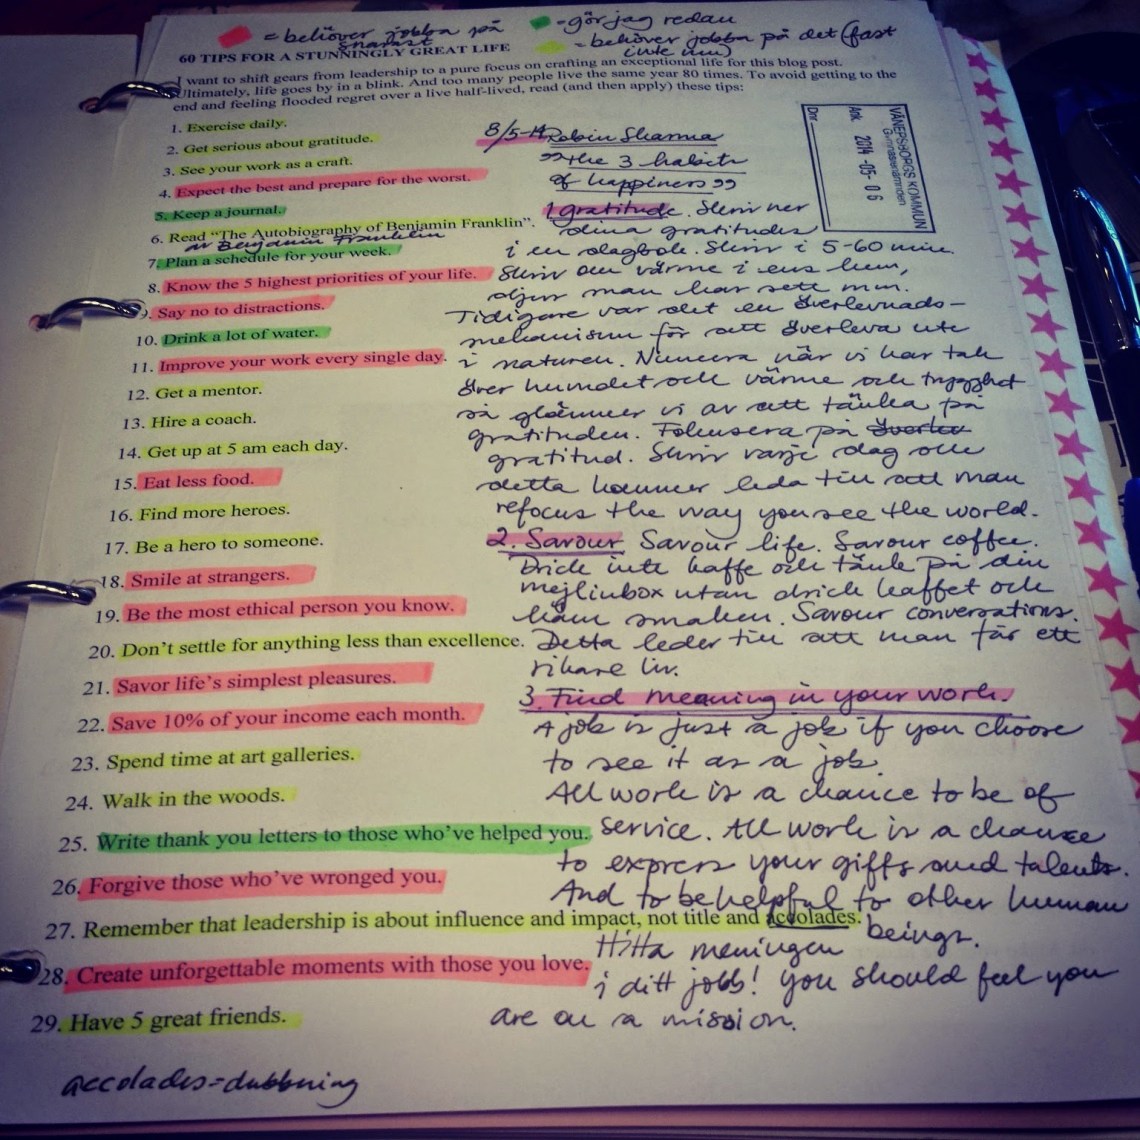 = behöver jobba på snarast
= gör jag redan
= behöver jobba på det (fast inte nu)
60 TIPS FOR A STUNNINGLY GREAT LIFE
I want to shift gears from leadership to a pure focus on crafting an exceptional life for this blog post.
Ultimately, life goes by in a blink. And too many people live the same year 80 times. To avoid getting to the
end and feeling flooded regret over a live half-lived, read (and then apply) these tips:
1. Exercise daily.
2. Get serious about gratitude.
3. See your work as a craft.
4. Expect the best and prepare for the worst.
5. Keep a journal.
6. Read "The Autobiography of Benjamin Franklin".
av Benjamin Franklin
7. Plan a schedule for your week.
8. Know the 5 highest priorities of your life.
9. Say no to distractions.
10. Drink a lot of water.
11. Improve your work every single day.
12. Get a mentor.
13. Hire a coach.
14. Get up at 5 am each day.
15. Eat less food.
16. Find more heroes.
17. Be a hero to someone.
18. Smile at strangers.
19. Be the most ethical person you know.
20. Don't settle for anything less than excellence.
21. Savor life's simplest pleasures.
22. Save 10% of your income each month.
23. Spend time at art galleries.
24. Walk in the woods.
25. Write thank you letters to those who've helped you.
26. Forgive those who've wronged you.
27. Remember that leadership is about influence and impact, not title and accolades.
28. Create unforgettable moments with those you love.
29. Have 5 great friends.
accolades=dubbning
8/5-14 Robin Sharma
"the 3 habits
of happiness"
1 gratitude. Skriv ner
dina gratitudes
i en dagbok. Skriv i 5-60 min.
Skriv om värme i ens hem,
djur man har sett mm.
Tidigare var det en överlevnads-
mekanism för att överleva ute
i naturen. Numera när vi har tak
över huvudet och värme och trygghet
så glömmer vi av att tänka på
gratituden. Fokusera på överlev
gratitud. Skriv varje dag och
detta kommer leda till att man
refocus the way you see the world.
2. Savour Savour life. Savour coffee.
Drick inte kaffe och tänk på din
mejlinbox utan drick kaffet och
känn smaken. Savour conversations.
Detta leder till att man får ett
rikare liv.
3. Find meaning in your work.
A job is just a job if you choose
to see it as a job.
All work is a chance to be of
service. All work is a chance
to express your gifts and talents.
And to be helpful to other human
beings.
Hitta meningen
i ditt jobb! You should feel you
are on a mission.
VÄNERSBORGS KOMMUN
Gymnasienämnden
Ank. 2014 -05- 06
Dnr